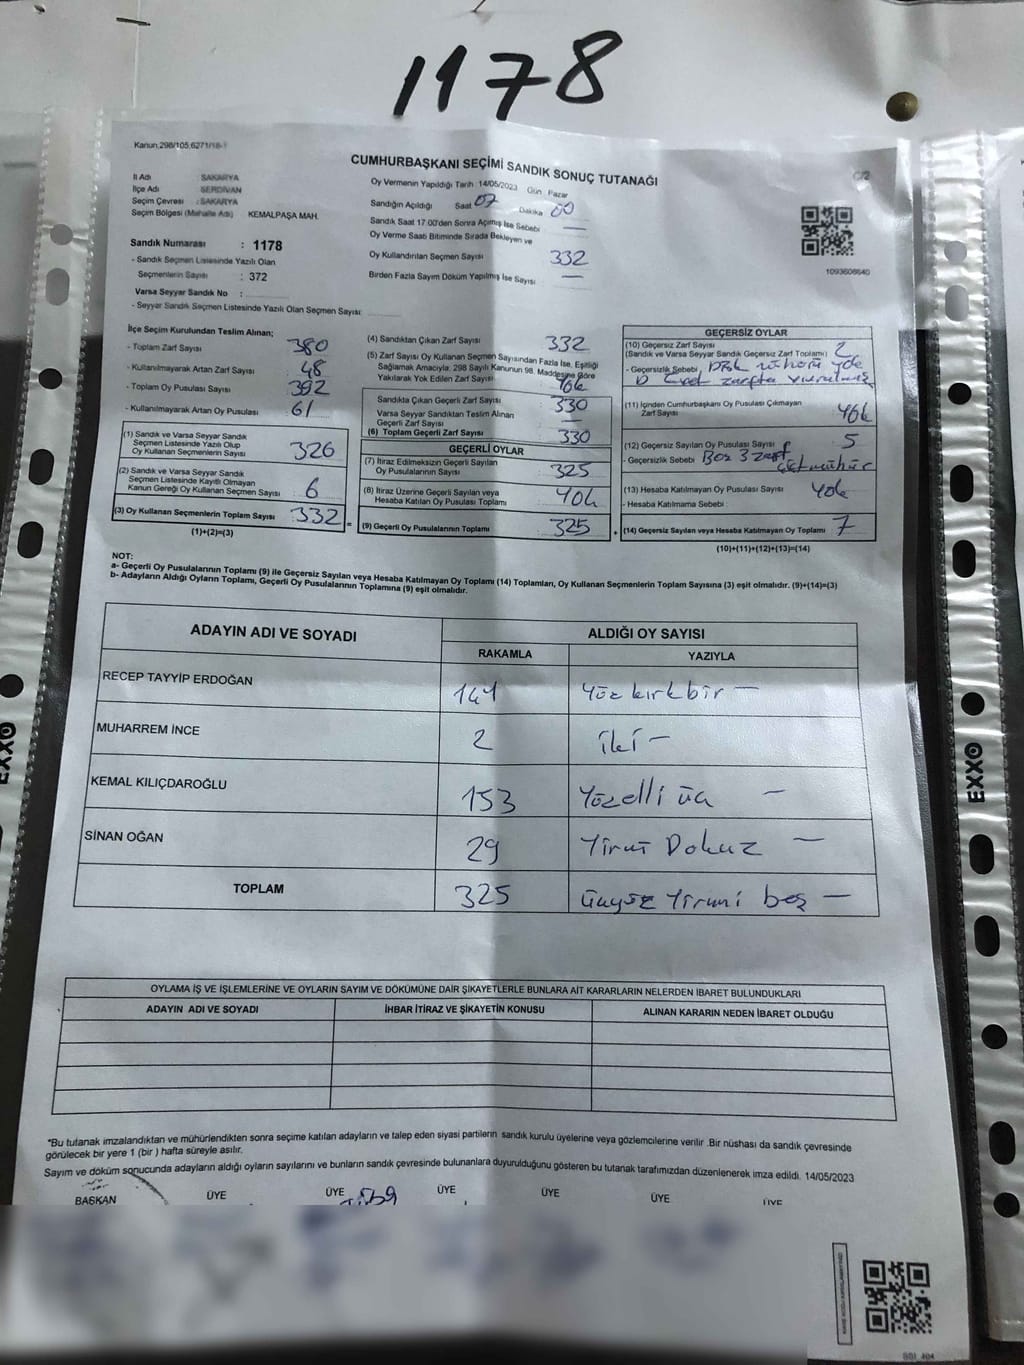 1178
Kanun,298/105,6271/18-1
CUMHURBAŞKANI SEÇİMİ SANDIK SONUÇ TUTANAĞI
C/2
İl Adı SAKARYA
İlçe Adı SERDİVAN
Seçim Çevresi : SAKARYA
Seçim Bölgesi (Mahalle Adı) KEMALPAŞA MAH.
Sandık Numarası : 1178
- Sandık Seçmen Listesinde Yazılı Olan
Seçmenlerin Sayısı : 372
Varsa Seyyar Sandık No :
- Seyyar Sandık Seçmen Listesinde Yazılı Olan Seçmen Sayısı:
Oy Vermenin Yapıldığı Tarih 14/05/2023 Gün Pazar
Sandığın Açıldığı Saat 07 Dakika 00
Sandık Saat 17:00'den Sonra Açılmış İse Sebebi —
Oy Verme Saati Bitiminde Sırada Bekleyen ve
Oy Kullandırılan Seçmen Sayısı 332
Birden Fazla Sayım Döküm Yapılmış İse Sayısı —
1093608640
İlçe Seçim Kurulundan Teslim Alınan;
- Toplam Zarf Sayısı 380
- Kullanılmayarak Artan Zarf Sayısı 48
- Toplam Oy Pusulası Sayısı 392
- Kullanılmayarak Artan Oy Pusulası 61
(1) Sandık ve Varsa Seyyar Sandık
Seçmen Listesinde Yazılı Olup
Oy Kullanan Seçmenlerin Sayısı 326
(2) Sandık ve Varsa Seyyar Sandık
Seçmen Listesinde Kayıtlı Olmayan
Kanun Gereği Oy Kullanan Seçmen Sayısı 6
(3) Oy Kullanan Seçmenlerin Toplam Sayısı :332 =
(1)+(2)=(3)
(4) Sandıktan Çıkan Zarf Sayısı 332
(5) Zarf Sayısı Oy Kullanan Seçmen Sayısından Fazla İse, Eşitliği
Sağlamak Amacıyla, 298 Sayılı Kanunun 98. Maddesine Göre
Yakılarak Yok Edilen Zarf Sayısı Yok
Sandıkta Çıkan Geçerli Zarf Sayısı 330
Varsa Seyyar Sandıktan Teslim Alınan
Geçerli Zarf Sayısı —
(6) Toplam Geçerli Zarf Sayısı 330
GEÇERLİ OYLAR
(7) İtiraz Edilmeksizin Geçerli Sayılan
Oy Pusulalarının Sayısı 325
(8) İtiraz Üzerine Geçerli Sayılan veya
Hesaba Katılan Oy Pusulası Toplamı YOk
(9) Geçerli Oy Pusulalarının Toplamı 325 +
GEÇERSİZ OYLAR
(10) Geçersiz Zarf Sayısı 2
(Sandık ve Varsa Seyyar Sandık Geçersiz Zarf Toplamı)
- Geçersizlik Sebebi
(11) İçinden Cumhurbaşkanı Oy Pusulası Çıkmayan
Zarf Sayısı Yok
(12) Geçersiz Sayılan Oy Pusulası Sayısı 5
- Geçersizlik Sebebi Boş 3 zarf
(13) Hesaba Katılmayan Oy Pusulası Sayısı Yok
- Hesaba Katılmama Sebebi :
(14) Geçersiz Sayılan veya Hesaba Katılmayan Oy Toplamı 7
(10)+(11)+(12)+(13)=(14)
NOT:
a- Geçerli Oy Pusulalarının Toplamı (9) ile Geçersiz Sayılan veya Hesaba Katılmayan Oy Toplamı (14) Toplamları, Oy Kullanan Seçmenlerin Toplam Sayısına (3) eşit olmalıdır. (9)+(14)=(3)
b- Adayların Aldığı Oyların Toplamı, Geçerli Oy Pusulalarının Toplamına (9) eşit olmalıdır.
ADAYIN ADI VE SOYADI ALDIĞI OY SAYISI
RAKAMLA YAZIYLA
RECEP TAYYİP ERDOĞAN 141 Yüz kırk bir —
MUHARREM İNCE 2 iki —
KEMAL KILIÇDAROĞLU 153 Yüzelli üç —
SİNAN OĞAN 29 Yirmi Dokuz —
TOPLAM 325 Üçyüz Yirmi beş —
OYLAMA İŞ VE İŞLEMLERİNE VE OYLARIN SAYIM VE DÖKÜMÜNE DAİR ŞİKAYETLERLE BUNLARA AİT KARARLARIN NELERDEN İBARET BULUNDUKLARI
ADAYIN ADI VE SOYADI İHBAR İTİRAZ VE ŞİKAYETİN KONUSU ALINAN KARARIN NEDEN İBARET OLDUĞU
*Bu tutanak imzalandıktan ve mühürlendikten sonra seçime katılan adayların ve talep eden siyasi partilerin sandık kurulu üyelerine veya gözlemcilerine verilir .Bir nüshası da sandık çevresinde
görülecek bir yere 1 (bir ) hafta süreyle asılır.
Sayım ve döküm sonucunda adayların aldığı oyların sayılarını ve bunların sandık çevresinde bulunanlara duyurulduğunu gösteren bu tutanak tarafımızdan düzenlenerek imza edildi. 14/05/2023
BAŞKAN ÜYE ÜYE ÜYE ÜYE ÜYE ÜYE
EXXO
EXXO